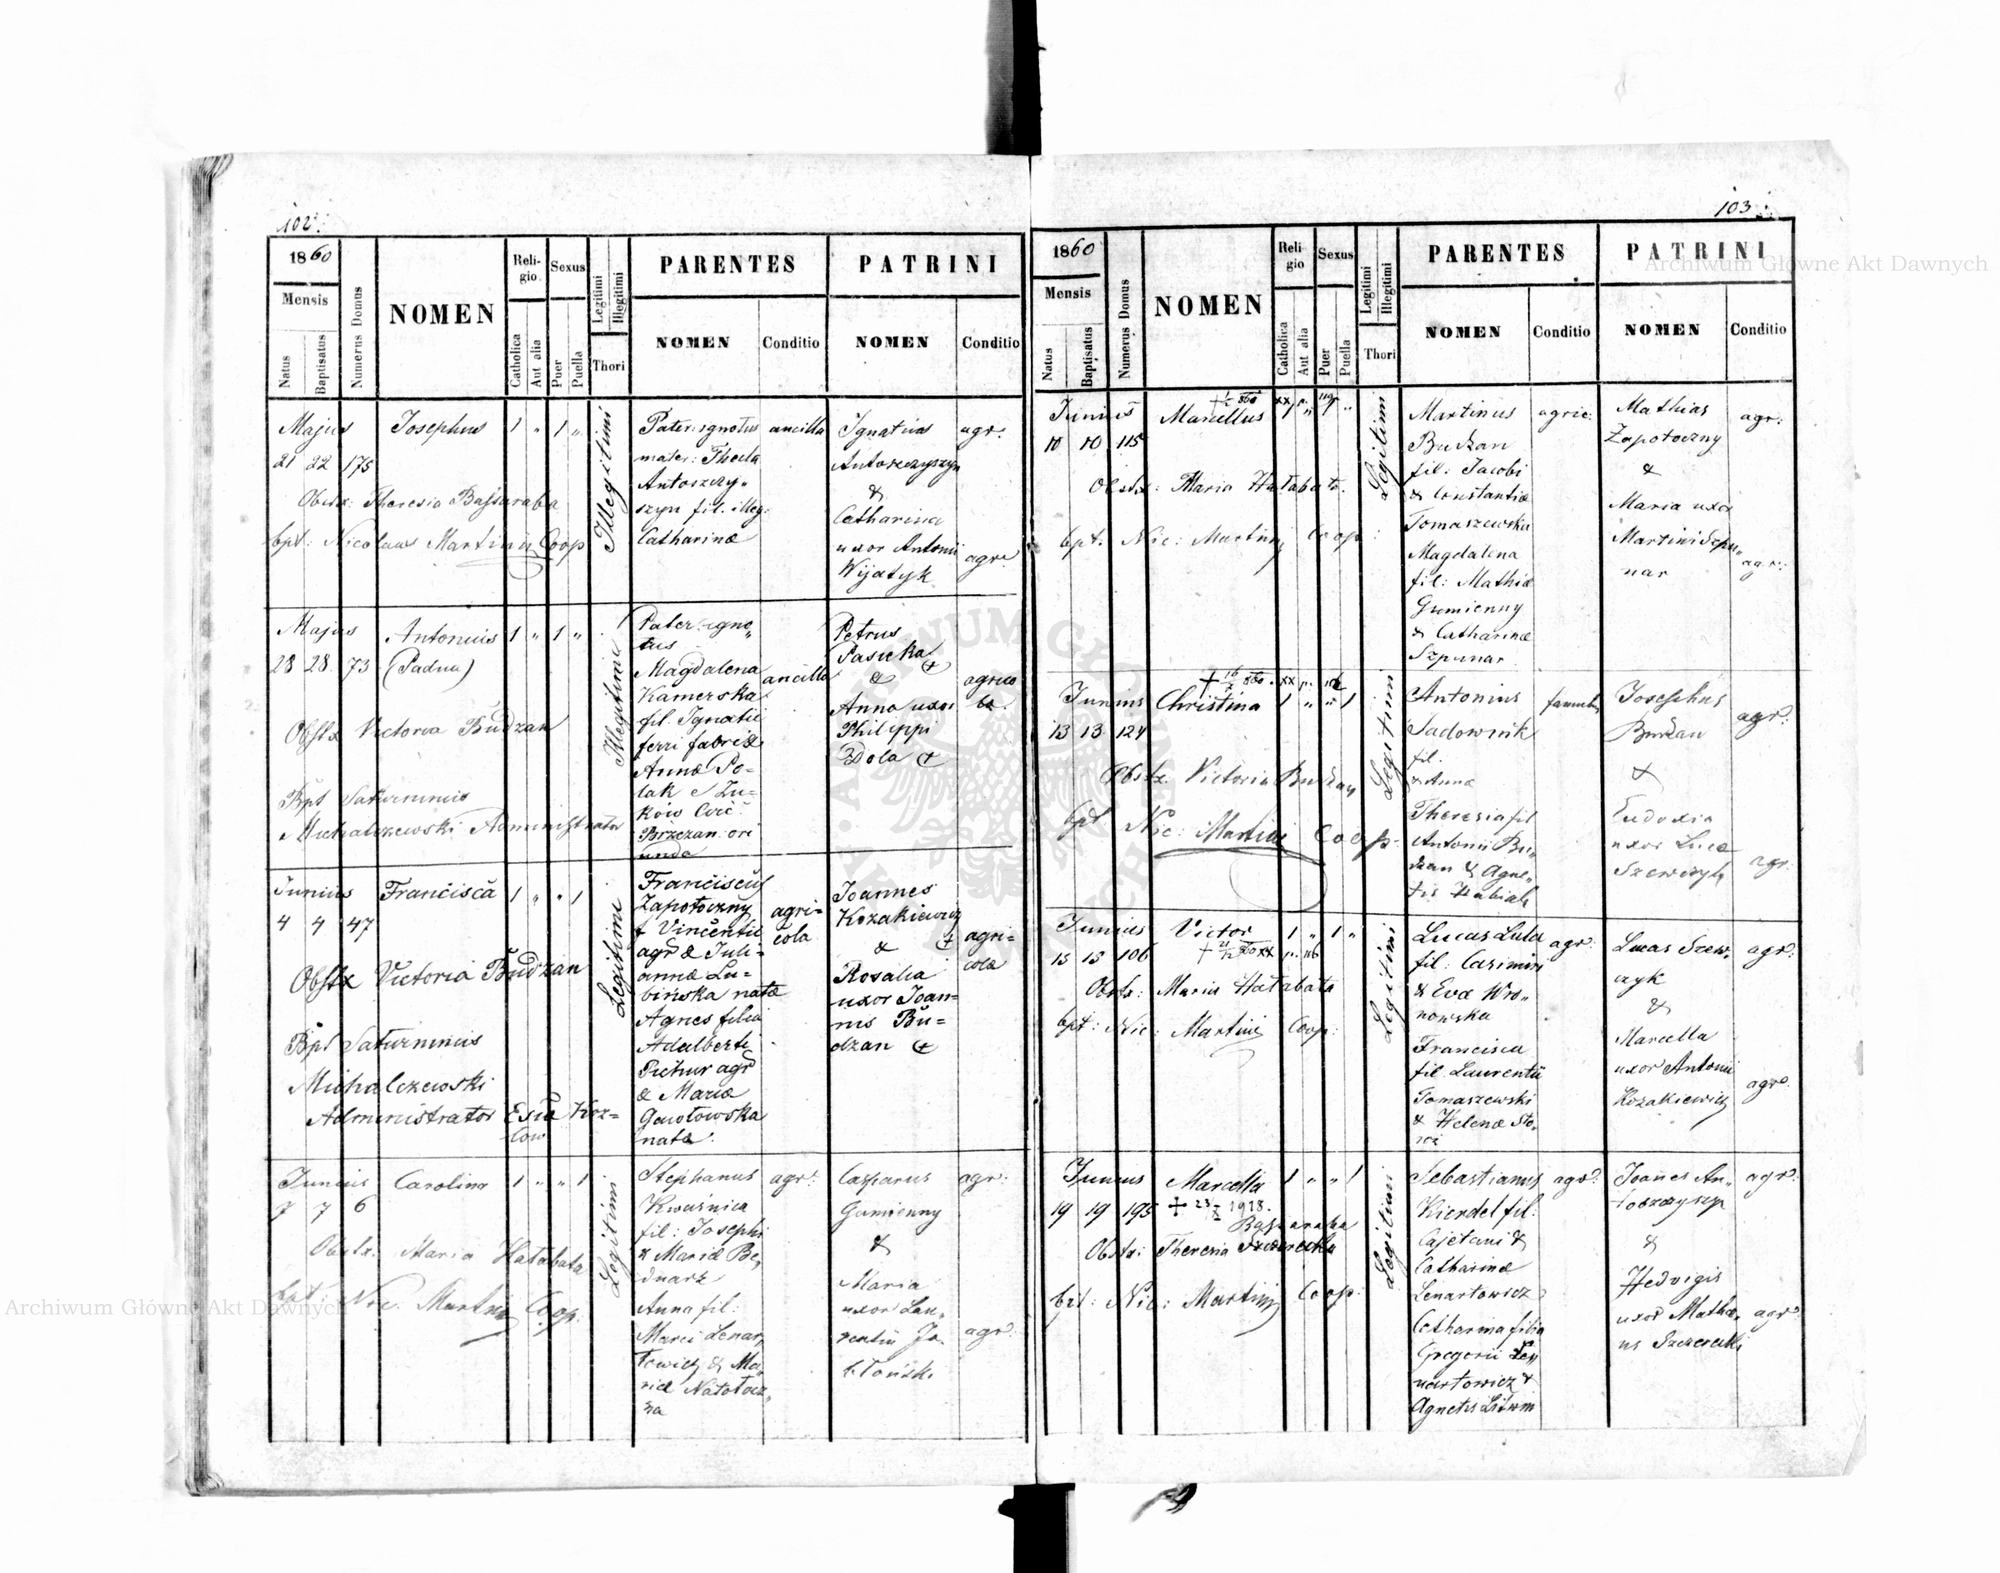 102.
1860
Mensis
Natus
Baptisatus
Numerus Domus
NOMEN
Reli-
gio.
Catholica
Aut alia
Sexus
Puer
Puella
Legitimi
Illegitimi
Thori
PARENTES
NOMEN
Conditio
PATRINI
NOMEN
Conditio
Majus
21 22 175
Josephus
1 " 1 "
Obstx: Theresia Bassaraba
bpt: Nicolaus Martini Coop
Illegitimi
Pater: ignotus
mater: Thecla
Antoszczy-
szyn fil. illeg:
Catharinæ
ancilla
Ignatius
Antoszczyszyn
&
Catharina
uxor Antonii
Wijatyk
agr:
agr:
Majus
28 28 73
Antonius
(Padua)
1 " 1 "
Obstx Victoria Budzan
Bpt Saturninus
Michalczewski Administrator
Illegitimi
Pater igno-
tus
Magdalena
Kamerska
fil. Ignatii
ferri fabri &
Annæ Po-
lak e Żu-
ków Circ:
Brzezan: ori
unda
ancilla
Petrus
Pasieka +
&
Anna uxor
Philippi
Dola +
agrico
læ.
Junius
4 4 47
Francisca
1 " " 1
Obstx Victoria Budzan
Bpt Saturninus
Michalczewski
Administrator Esia Koz=
low
Legitimi
Franciscus
Zapotoczny
f Vincentii
agr & Juli-
annæ Lu-
bińska natæ
Agnes filia
Adalberti
Pichur agr
& Mariæ
Gawłowska
natæ.
agri=
cola
Joannes
Kozakiewicz
& +
Rosalia
uxor Joan=
nis Bu=
dzan +
agri-
colæ
Junius
7 7 6
Carolina
1 " " 1
Obstx: Maria Hałabata
bpt: Nic: Martini Coop:
Legitimi
Stephanus
Kwaśnica
fil: Josephi
& Mariæ Be-
dnarz
Anna fil:
Marci Lenar-
towicz & Ma-
riæ Natołocz-
na
agr:
Casparus
Gumienny
&
Maria
uxor Lau-
rentii Ja-
błoński
agr:
agr:
103.
1860
Mensis
Natus
Baptisatus
Numerus Domus
NOMEN
Reli
gio
Catholica
Aut alia
Sexus
Puer
Puella
Legitimi
Illegitimi
Thori
PARENTES
NOMEN
Conditio
PATRINI
NOMEN
Conditio
Junius
10 10 115
Marcellus
Obstx: Maria Hałabata.
bpt. Nic: Martini Coop:
Legitimi
Martinus
Budzan
fil: Jacobi
& Constantiæ
Tomaszewska
Magdalena
fil: Mathiæ
Gumienny
& Catharinæ
Szpunar
agric:
Mathias
Zapotoczny
&
Maria uxor
Martini Szpu-
nar
agr:
agr:
Junius
13 13 124
Christina
Obstx Victoria Budzan
bpt Nic: Martini Coop.
Legitimi
Antonius
Sadownik
fil.
& Annæ
Theresia fil
Antonii Bu-
dzan & Agne-
tis
famulus
Josephus
Budzan
&
Eudoxia
uxor Lucæ
Szewczyk
agr:
agr.
Junius
15 15 106
Victor
1 " 1 "
Obstx: Maria Hałabata
bpt: Nic: Martini Coop:
Legitimi
Lucas Lula
fil: Casimiri
& Evæ Wro-
nowska
Francisca
fil Laurentii
Tomaszewski
& Helenæ
agr:
Lucas Szew-
czyk
&
Marcella
uxor Antonii
Kozakiewicz
agr:
agr:
Junius
19 19 195
Marcella
1 " " 1
+ 23/X 1918.
Bassaraba
Obstx: Theresia
bpt: Nic: Martini Coop:
Legitimi
Sebastianus
Kierdel fil:
Cajetani &
Catharinæ
Lenartowicz
Catharina filia
Gregorii Le-
nartowicz &
Agnetis Litwin
agr:
Joannes An-
toszczyszyn
&
Hedvigis
uxor Mathæ-
us
agr:
agr:
Archiwum Główne Akt Dawnych
Archiwum Główne Akt Dawnych